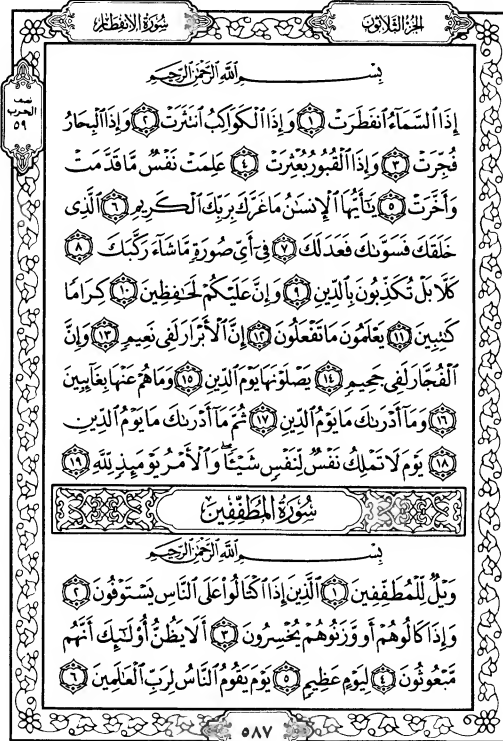 سُورَةُ الانفِطَار الجُزْءُ الثَّلَاثُونَ
نصف
الحزب
٥٩
بِسْمِ اللَّهِ الرَّحْمَٰنِ الرَّحِيمِ
إِذَا السَّمَآءُ انفَطَرَتْ ١ وَإِذَا الْكَوَاكِبُ انتَثَرَتْ ٢ وَإِذَا الْبِحَارُ
فُجِّرَتْ ٣ وَإِذَا الْقُبُورُ بُعْثِرَتْ ٤ عَلِمَتْ نَفْسٌ مَّا قَدَّمَتْ
وَأَخَّرَتْ ٥ يَٰٓأَيُّهَا الْإِنسَٰنُ مَا غَرَّكَ بِرَبِّكَ الْكَرِيمِ ٦ الَّذِى
خَلَقَكَ فَسَوَّىٰكَ فَعَدَلَكَ ٧ فِىٓ أَىِّ صُورَةٍ مَّا شَآءَ رَكَّبَكَ ٨
كَلَّا بَلْ تُكَذِّبُونَ بِالدِّينِ ٩ وَإِنَّ عَلَيْكُمْ لَحَٰفِظِينَ ١٠ كِرَامًا
كَٰتِبِينَ ١١ يَعْلَمُونَ مَا تَفْعَلُونَ ١٢ إِنَّ الْأَبْرَارَ لَفِى نَعِيمٍ ١٣ وَإِنَّ
الْفُجَّارَ لَفِى جَحِيمٍ ١٤ يَصْلَوْنَهَا يَوْمَ الدِّينِ ١٥ وَمَا هُمْ عَنْهَا بِغَآئِبِينَ
١٦ وَمَآ أَدْرَىٰكَ مَا يَوْمُ الدِّينِ ١٧ ثُمَّ مَآ أَدْرَىٰكَ مَا يَوْمُ الدِّينِ
١٨ يَوْمَ لَا تَمْلِكُ نَفْسٌ لِّنَفْسٍ شَيْـًٔا ۖ وَالْأَمْرُ يَوْمَئِذٍ لِّلَّهِ ١٩
سُورَةُ المُطَفِّفِينَ
بِسْمِ اللَّهِ الرَّحْمَٰنِ الرَّحِيمِ
وَيْلٌ لِّلْمُطَفِّفِينَ ١ الَّذِينَ إِذَا اكْتَالُوا۟ عَلَى النَّاسِ يَسْتَوْفُونَ ٢
وَإِذَا كَالُوهُمْ أَو وَّزَنُوهُمْ يُخْسِرُونَ ٣ أَلَا يَظُنُّ أُو۟لَٰٓئِكَ أَنَّهُم
مَّبْعُوثُونَ ٤ لِيَوْمٍ عَظِيمٍ ٥ يَوْمَ يَقُومُ النَّاسُ لِرَبِّ الْعَٰلَمِينَ ٦
٥٨٧